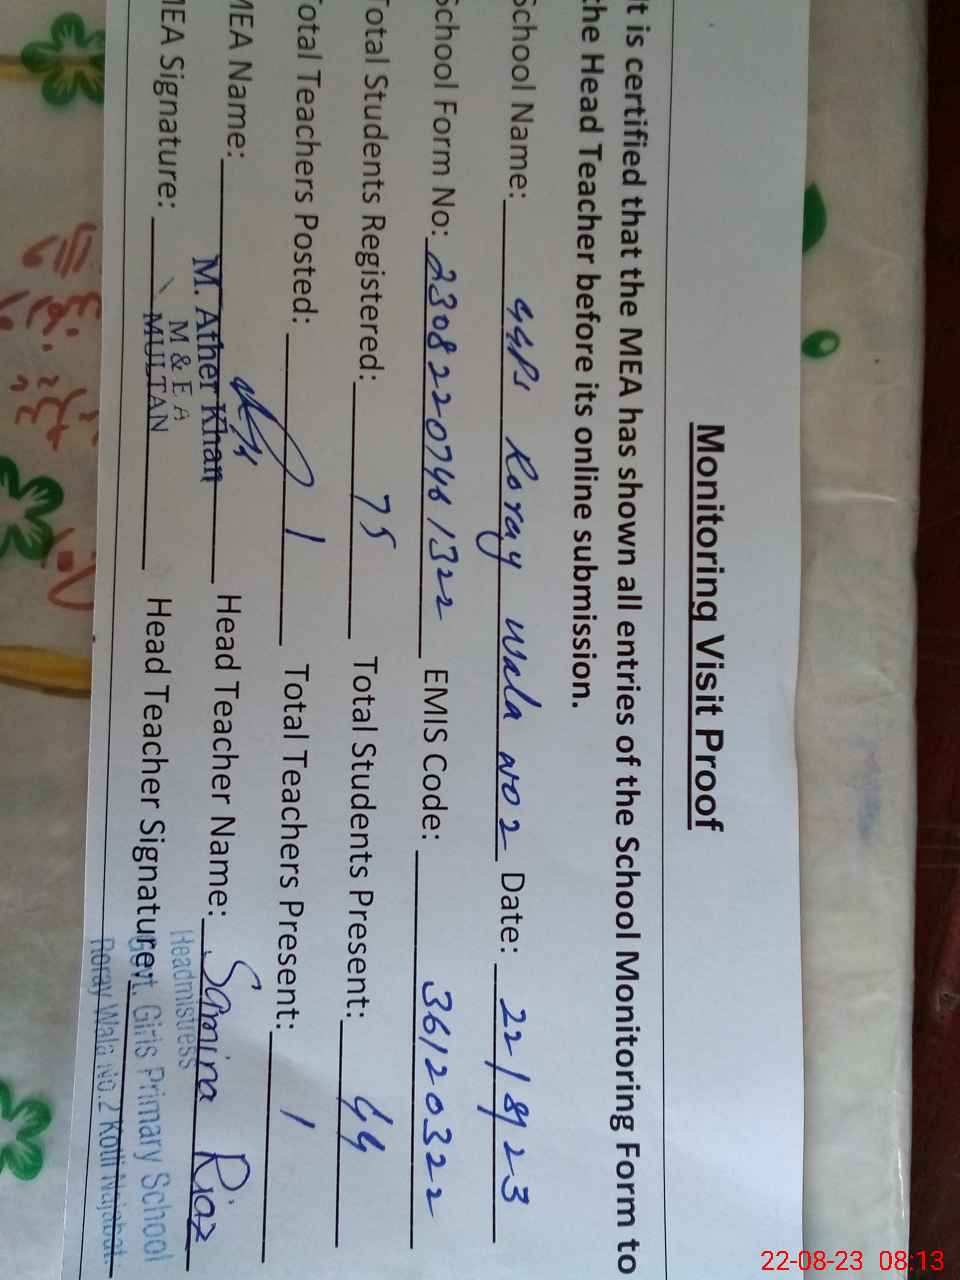 Monitoring Visit Proof
It is certified that the MEA has shown all entries of the School Monitoring Form to
the Head Teacher before its online submission.
School Name: GGPS Roray Wala NO 2 Date: 22/8/23
School Form No: EMIS Code: 36120322
Total Students Registered: 75 Total Students Present: 44
Total Teachers Posted: 1 Total Teachers Present: 1
MEA Name: M. Ather Khan Head Teacher Name: Samina Riaz
M & E A
MEA Signature: MULTAN Head Teacher Signature:
Headmistress
Govt. Girls Primary School
Roray Wala No.2 Kotli Najabat
22-08-23 08:13